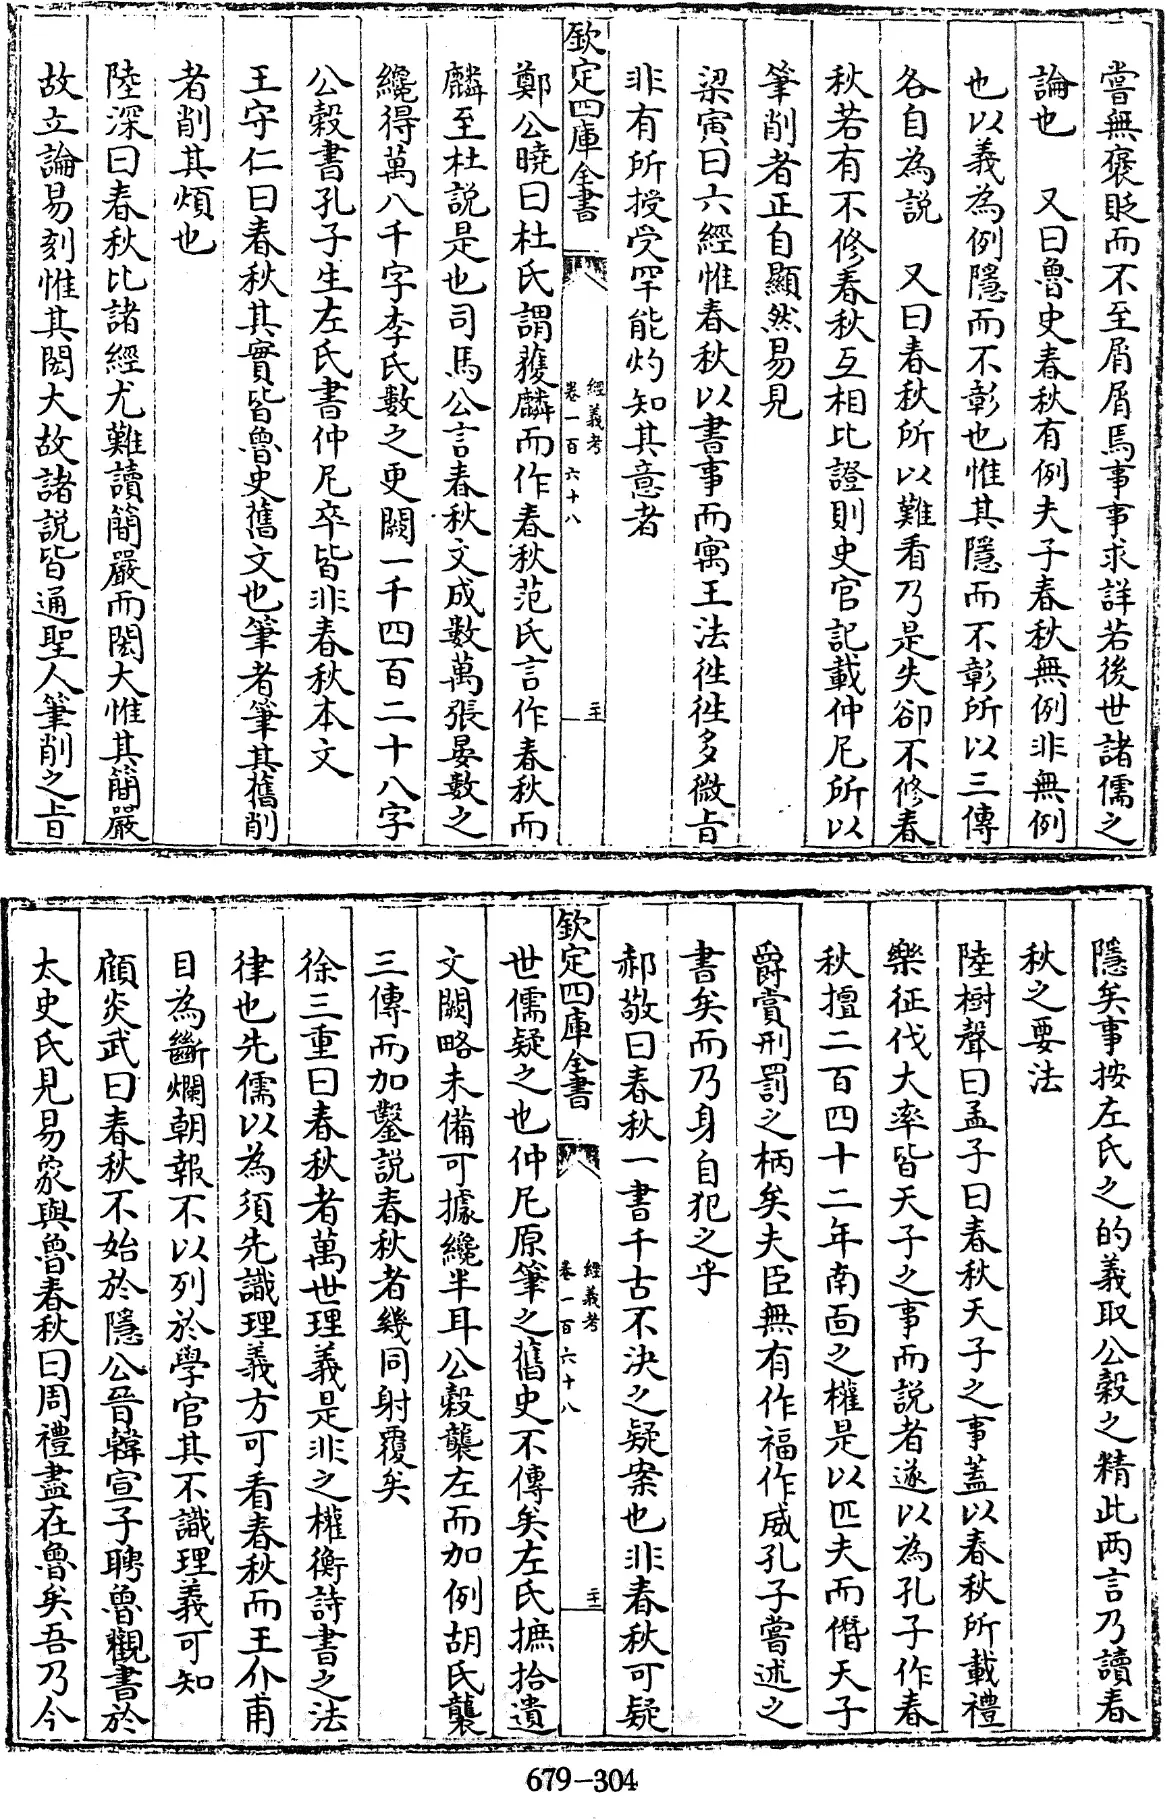 嘗無襃貶而不至屑屑焉事事求詳若後世諸儒之
論也　又曰魯史春秋有例夫子春秋無例非無例
也以義為例隱而不彰也惟其隱而不彰所以三傳
各自為說　又曰春秋所以難看乃是失卻不修春
秋若有不修春秋互相比證則史官記載仲尼所以
筆削者正自顯然易見
梁寅曰六經惟春秋以書事而寓王法徃徃多微旨
非有所授受罕能灼知其意者
欽定四庫全書
經義考
卷一百六十八
二十
鄭公曉曰杜氏謂獲麟而作春秋范氏言作春秋而
麟至杜說是也司馬公言春秋文成數萬張晏數之
纔得萬八千字李氏數之更闕一千四百二十八字
公穀書孔子生左氏書仲尼卒皆非春秋本文
王守仁曰春秋其實皆魯史舊文也筆者筆其舊削
者削其煩也
陸深曰春秋比諸經尤難讀簡嚴而閎大惟其簡嚴
故立論易刻惟其閎大故諸說皆通聖人筆削之旨
隱矣事按左氏之的義取公穀之精此两言乃讀春
秋之要法
陸樹聲曰孟子曰春秋天子之事蓋以春秋所載禮
樂征伐大率皆天子之事而説者遂以為孔子作春
秋擅二百四十二年南面之權是以匹夫而僭天子
爵賞刑罰之柄矣夫臣無有作福作威孔子嘗述之
書矣而乃身自犯之乎
郝敬曰春秋一書千古不決之疑案也非春秋可疑
欽定四庫全書
經義考
卷一百六十八
二十一
世儒疑之也仲尼原筆之舊史不傳矣左氏摭拾遺
文闕略未備可據纔半耳公穀襲左而加例胡氏襲
三傳而加鑿説春秋者幾同射覆矣
徐三重曰春秋者萬世理義是非之權衡詩書之法
律也先儒以為須先識理義方可看春秋而王介甫
目為斷爛朝報不以列於學官其不識理義可知
顧炎武曰春秋不始於隱公晉韓宣子聘魯觀書於
太史氏見易象與魯春秋曰周禮盡在魯矣吾乃今
679-304